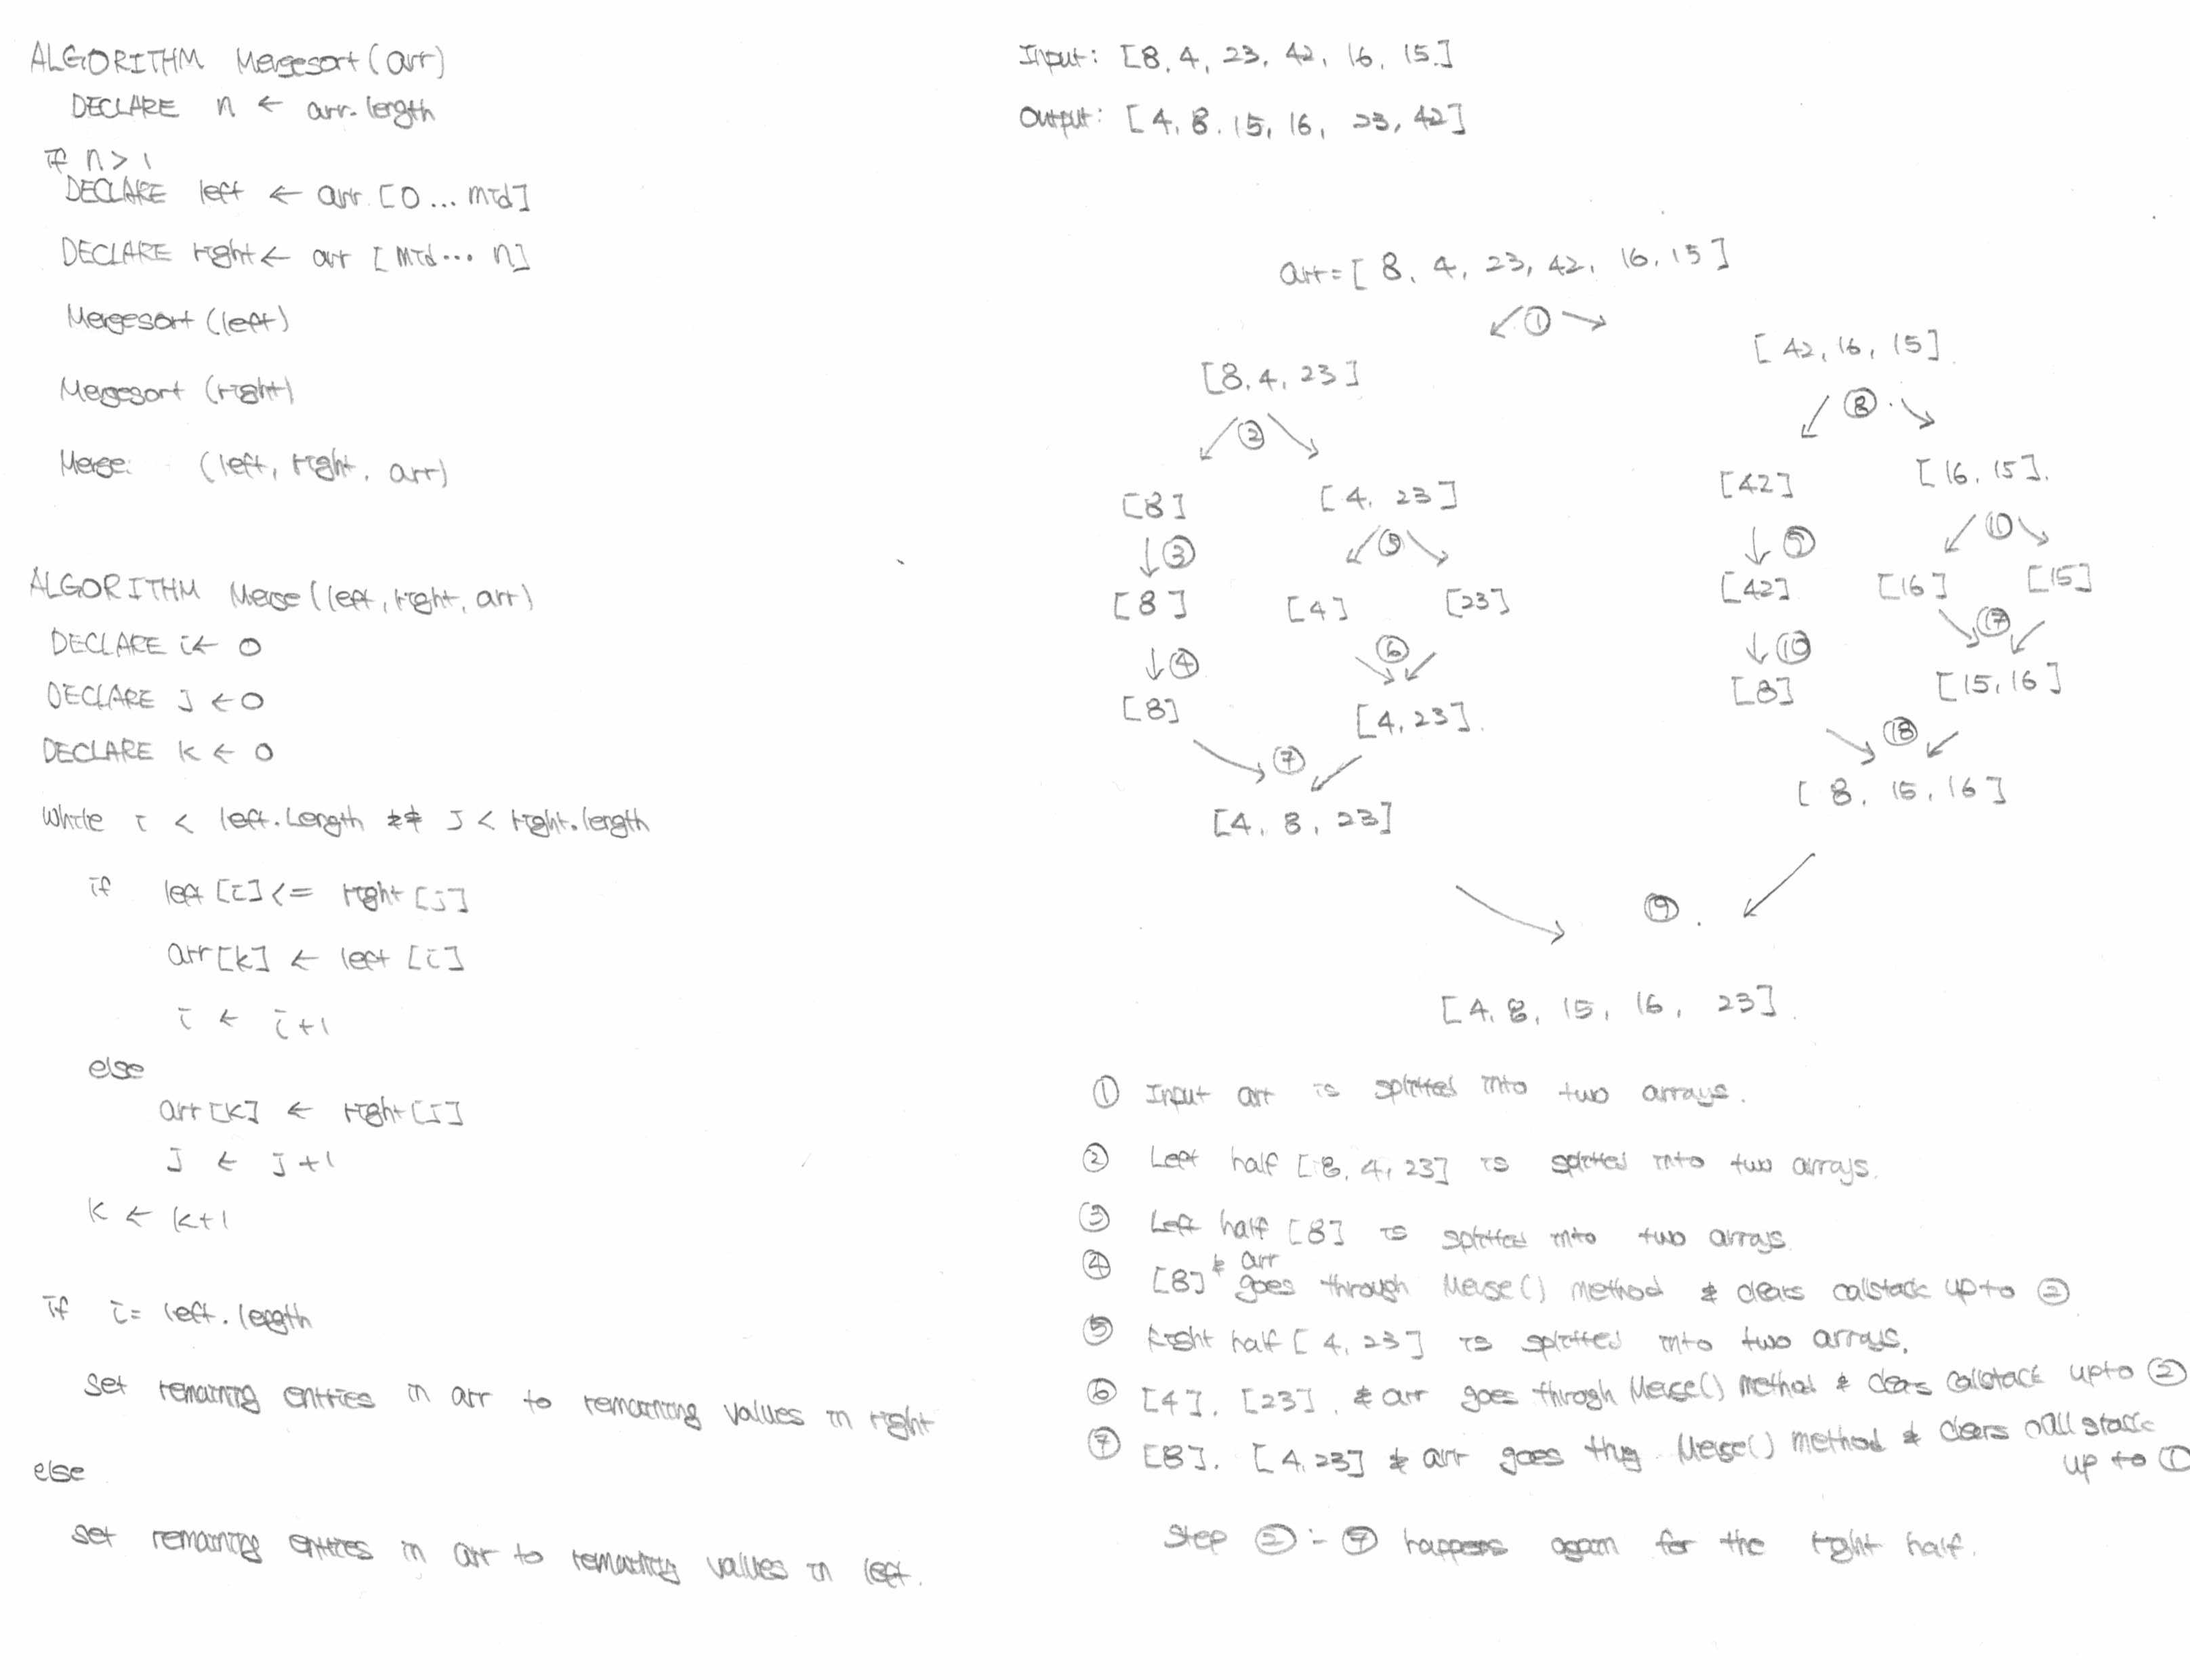 ALGORITHM Mergesort (arr)
DECLARE n ← arr.length
if n > 1
DECLARE left ← arr [0...mid]
DECLARE right ← arr [mid... n]
Mergesort (left)
Mergesort (right)
Merge (left, right, arr)
ALGORITHM Merge (left, right, arr)
DECLARE i ← 0
DECLARE j ← 0
DECLARE k ← 0
while i < left.Length && j < right.length
if left [i] <= right [j]
arr[k] ← left [i]
i ← i+1
else
arr[k] ← right[j]
j ← j+1
k ← k+1
if i = left.length
set remaining entries in arr to remaining values in right
else
set remaining entries in arr to remaining values in left.
Input: [8, 4, 23, 42, 16, 15]
Output: [4, 8, 15, 16, 23, 42]
arr = [8, 4, 23, 42, 16, 15]
①
[8, 4, 23] [42, 16, 15]
② ⑧
[8] [4, 23] [42] [16, 15]
③ ⑤ ⑨ ⑪
[8] [4] [23] [42] [16] [15]
④ ⑥ ⑩ ⑰
[8] [4, 23] [8] [15, 16]
⑦ ⑱
[4, 8, 23] [8, 15, 16]
⑲
[4, 8, 15, 16, 23]
① Input arr is splitted into two arrays.
② Left half [8, 4, 23] is splitted into two arrays.
③ Left half [8] is splitted into two arrays
④ [8] & arr goes through Merge() method & clears callstack up to ②
⑤ Right half [4, 23] is splitted into two arrays.
⑥ [4], [23], & arr goes through Merge() method & clears callstack up to ②
⑦ [8], [4, 23] & arr goes Merge() method & clears call stack
up to ①
Step ② - ⑦ happens again for the right half.